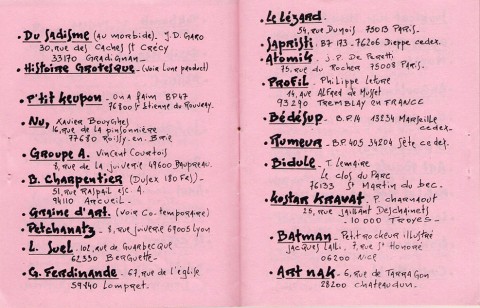 • Du Sadisme (au morbide). J.D. Garo
30, rue des Caches St Crécy
33170 Gradignan
• Histoire Grotesque - (voir Lune product)
• P'tit Keupon - On a faim BP47
76800 St Etienne du Rouvray
• Nu, Xavier Bouyghes
16, rue de la pinsonnière
77680 Roissy-en-Brie
• Groupe A. Vincent Courtois
8, rue de la juiverie 49600 Baupreau.
• B. Charpentier (Dulex 180 Frs) -
51, rue Raspail esc. A
94110 Arcueil -
• Graine d'art. (voir Co.temporaire)
• Petchanatz - 8, rue juiverie 69005 Lyon
• L. Suel - 102, rue de Guarbecque
62330 Berguette -
• G. Ferdinande - 67, rue de l'église
59840 Lompret.
• Le Lézard.
54, rue Dunois 75013 Paris.
• Sapristi - BP 173 - 76206 Dieppe cedex.
• Atomik - J.P. De
75, rue du Rocher 75008 Paris.
• Profil - Philippe
14, rue Alfred de Musset
93290 Tremblay en France
• Bédésup - B.P.14 13234 Marseille
cedex.
• Rumeur - BP.405 34204 Sète cedex.
• Bidule - T. Lemaire
Le clos du Parc
76133 St Martin du bec.
• Kostar Kravat - P. Charnaout
25, rue Jaillant Deschainets
- 10000 Troyes -
• Batman - Petit rockeur illustré
Jacques Lalli, 7, rue St Honoré
06200 Nice
• Artnak - 6, rue de Tarragon
28200 Chateaudun